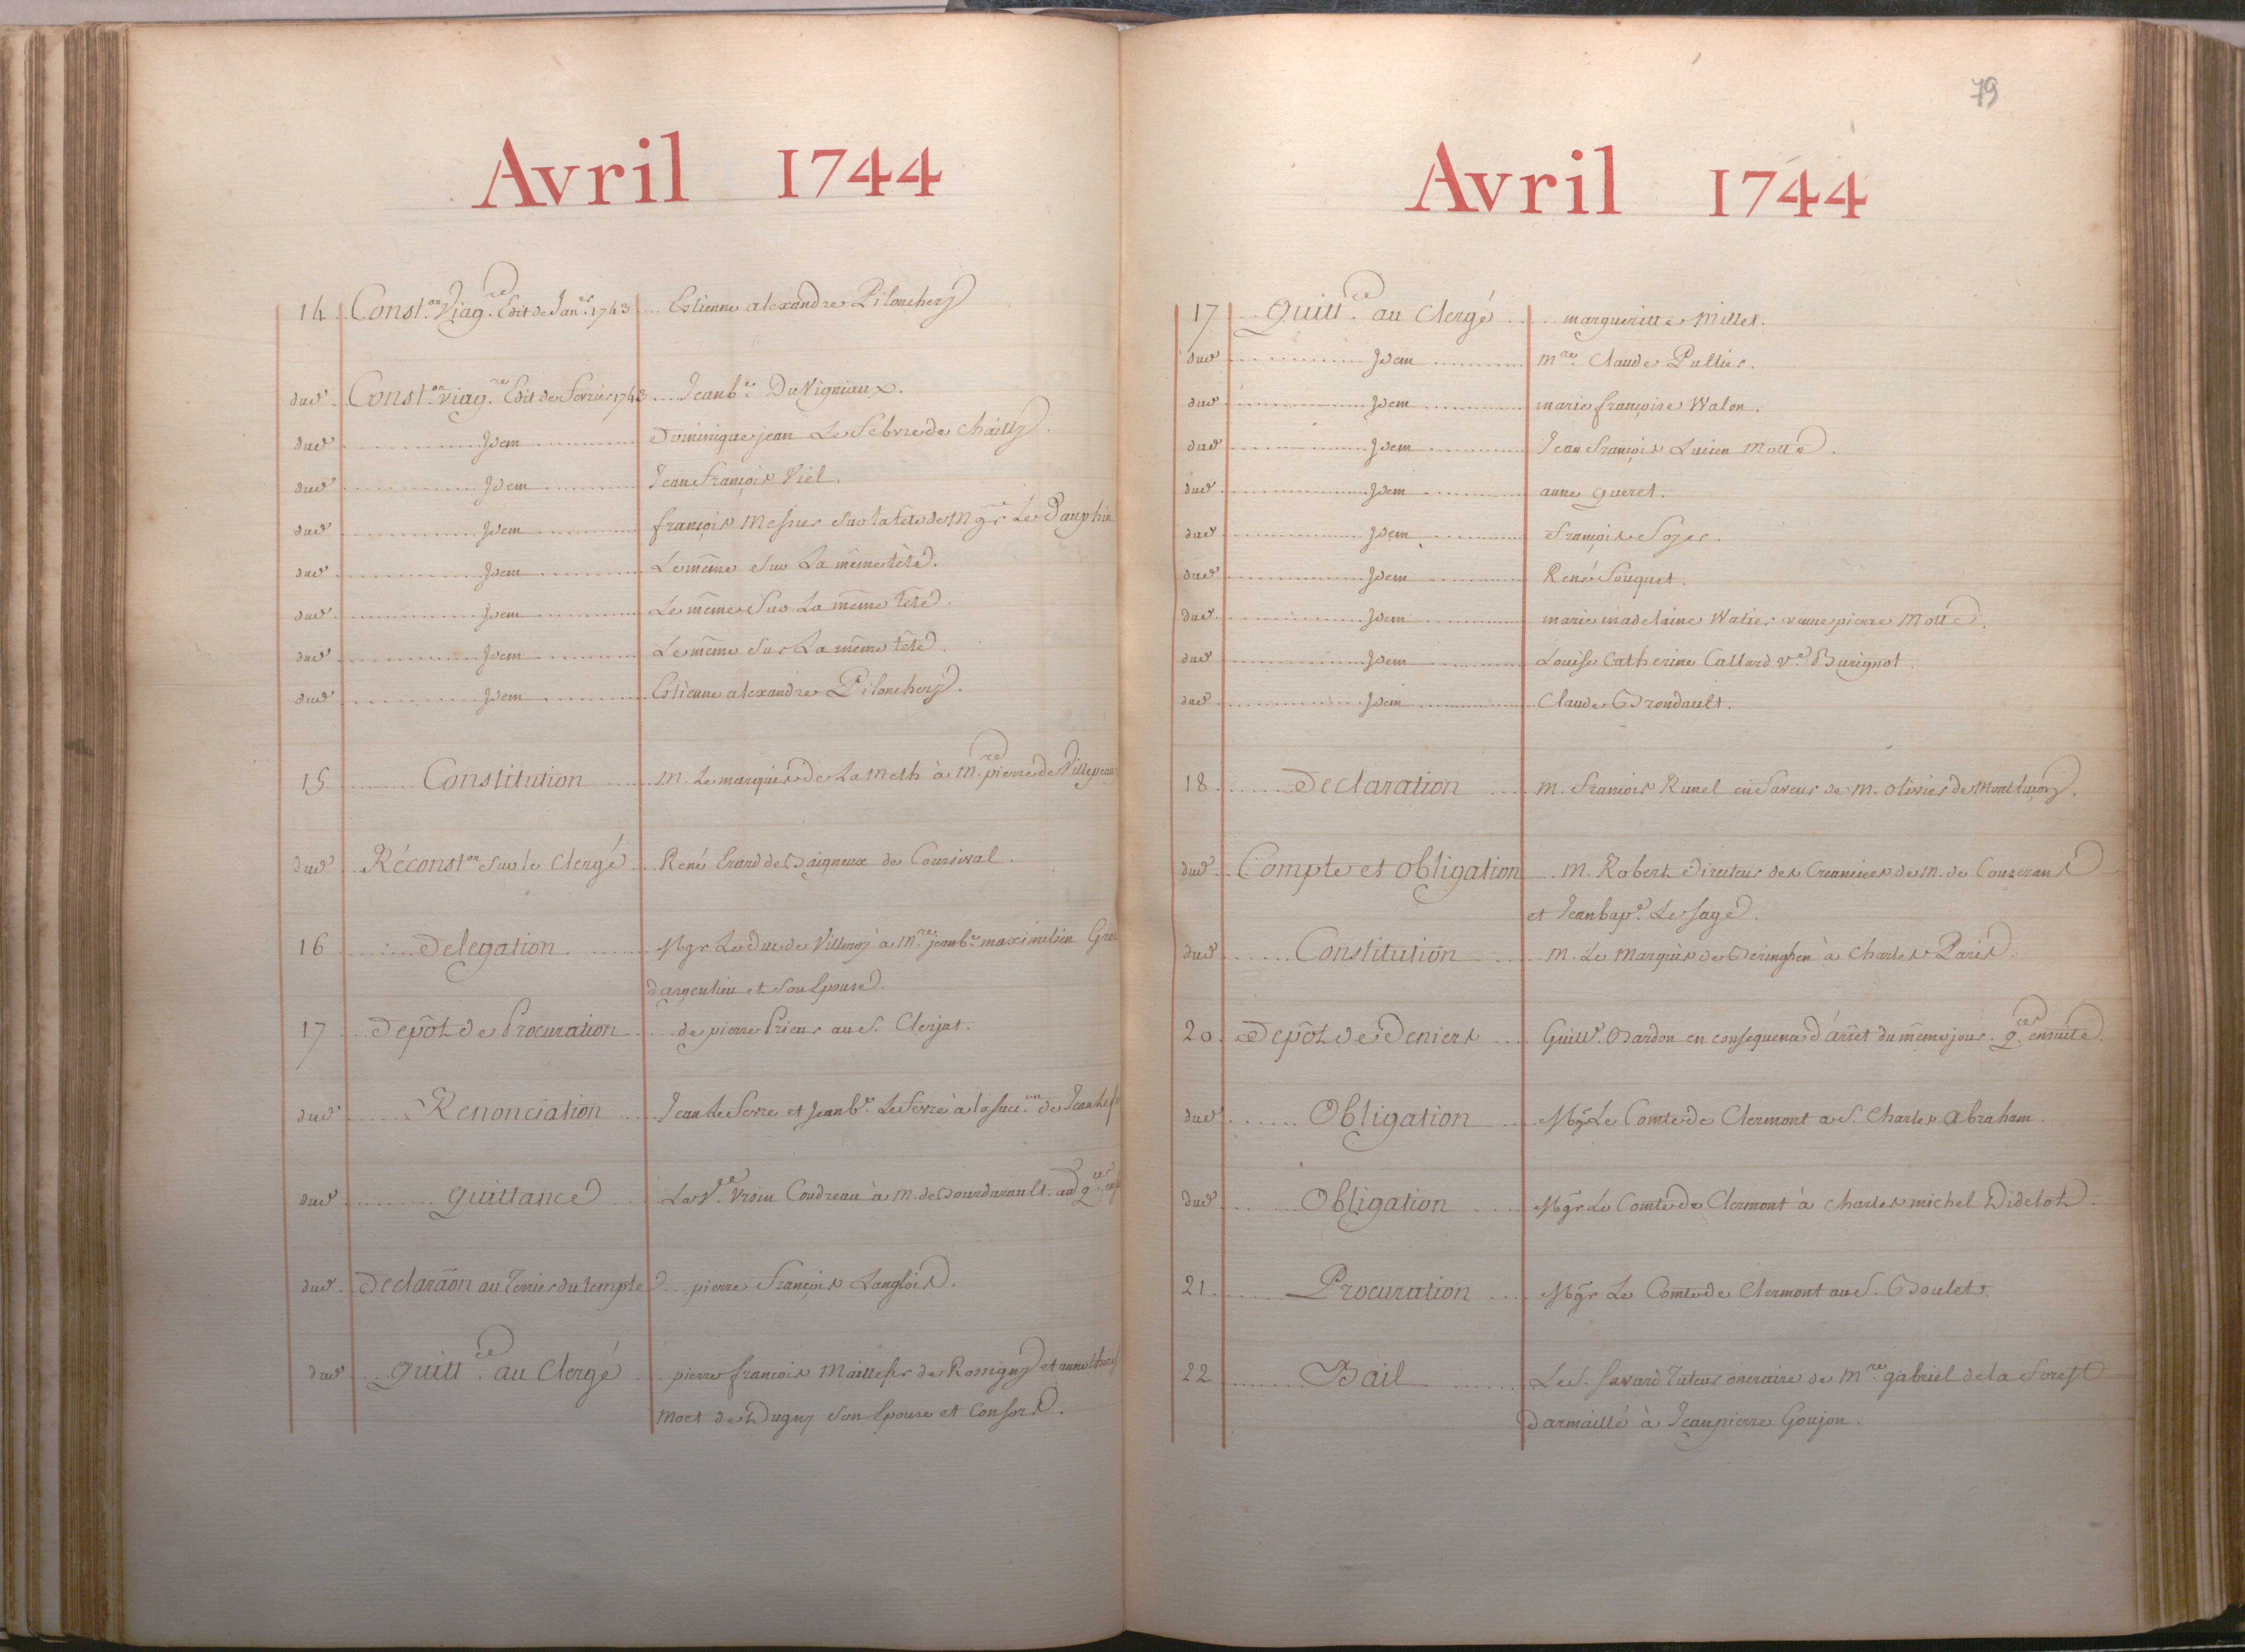 Avril 1744
14 Const.on Viag.re Edit de Jan.er 1743 Estienne alexandre Pilonchery
dud Const.on viag.re Edit de Fevrier 1743 Jean b.te DuVigniaux.
dud Idem Dominique jean Le Febvre de Chailly.
dud Idem Jean François Viel.
dud Idem françois Messier sur la tête de Mgr Le Dauphin
dud Idem Le même sur La même tête.
dud Idem Le même sur La même tête.
dud Idem Le même sur La même tête.
dud Idem Estienne alexandre Pilonchery.
15 Constitution M. Le marquis de La Meth à M.re pierre de
dud Réconst.on sur le Clergé René Erard de Baigneux de Courcival.
16 Delegation Mgr Le Duc de Villeroy à M.re jean b.te maximilien
dargenlieu et son Epouse.
17 Depôt de Procuration de pierre Prieur au S. Clerjat.
dud Renonciation Jean Le Fevre et Jean b.te Le Fevre à la succ.on de Jean
dud Quittance La V.e Vrsin Coudreau à M. de
dud Declaraõn au Terrier du temple pierre François Langlois.
dud Quitt.ce au Clergé pierre françois Maillefer de Rossigny et anne
Moet de Dugny son Epouse et Consors.
79
Avril 1744
17 Quitt.ce au Clergé margueritte Millet.
dud Idem M.re Claude Pultier.
dud Idem marie françoise Walon.
dud Idem Jean François Lucien Motte.
dud Idem anne Queret.
dud Idem François Soyer.
dud Idem René Fouquet.
dud Idem marie madelaine Watier veuve pierre Motte.
dud Idem Louise Catherine Callard v.e Burignot.
dud Idem Claude Brondault.
18 Declaration M. François Runel en faveur de M. olivier de Montluçon.
dud Compte et Obligation M. Robert Directeur des Creanciers de M. de Couserans
et Jean bap.e Le Sage.
dud Constitution M. Le Marquis de Beringhen à Charles Paris.
20 Depôt de Deniers Guill.e Bardon en consequence d'arrêt du même jour. q.ces ensuite.
dud Obligation Mgr Le Comte de Clermont a S. Charles Abraham.
dud Obligation Mgr Le Comte de Clermont à Charles michel Didelot.
21 Procuration Mgr Le Comte de Clermont au S. Boulet.
22 Bail Le S. Savard Tuteur oneraire de M.re gabriel de la Forest
Darmaillé à Jean pierre Goujon.